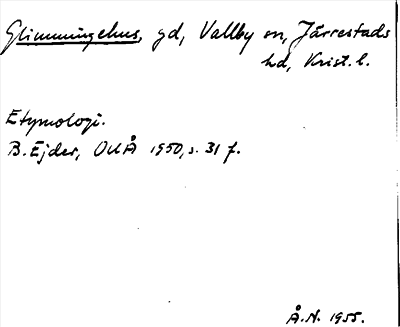 Glimmingehus, gd, Vallby sn, Järrestads
hd, Krist. l.
Etymologi.
B. Ejder, OUÅ 1950, s. 31 f.
Å.N. 1955.